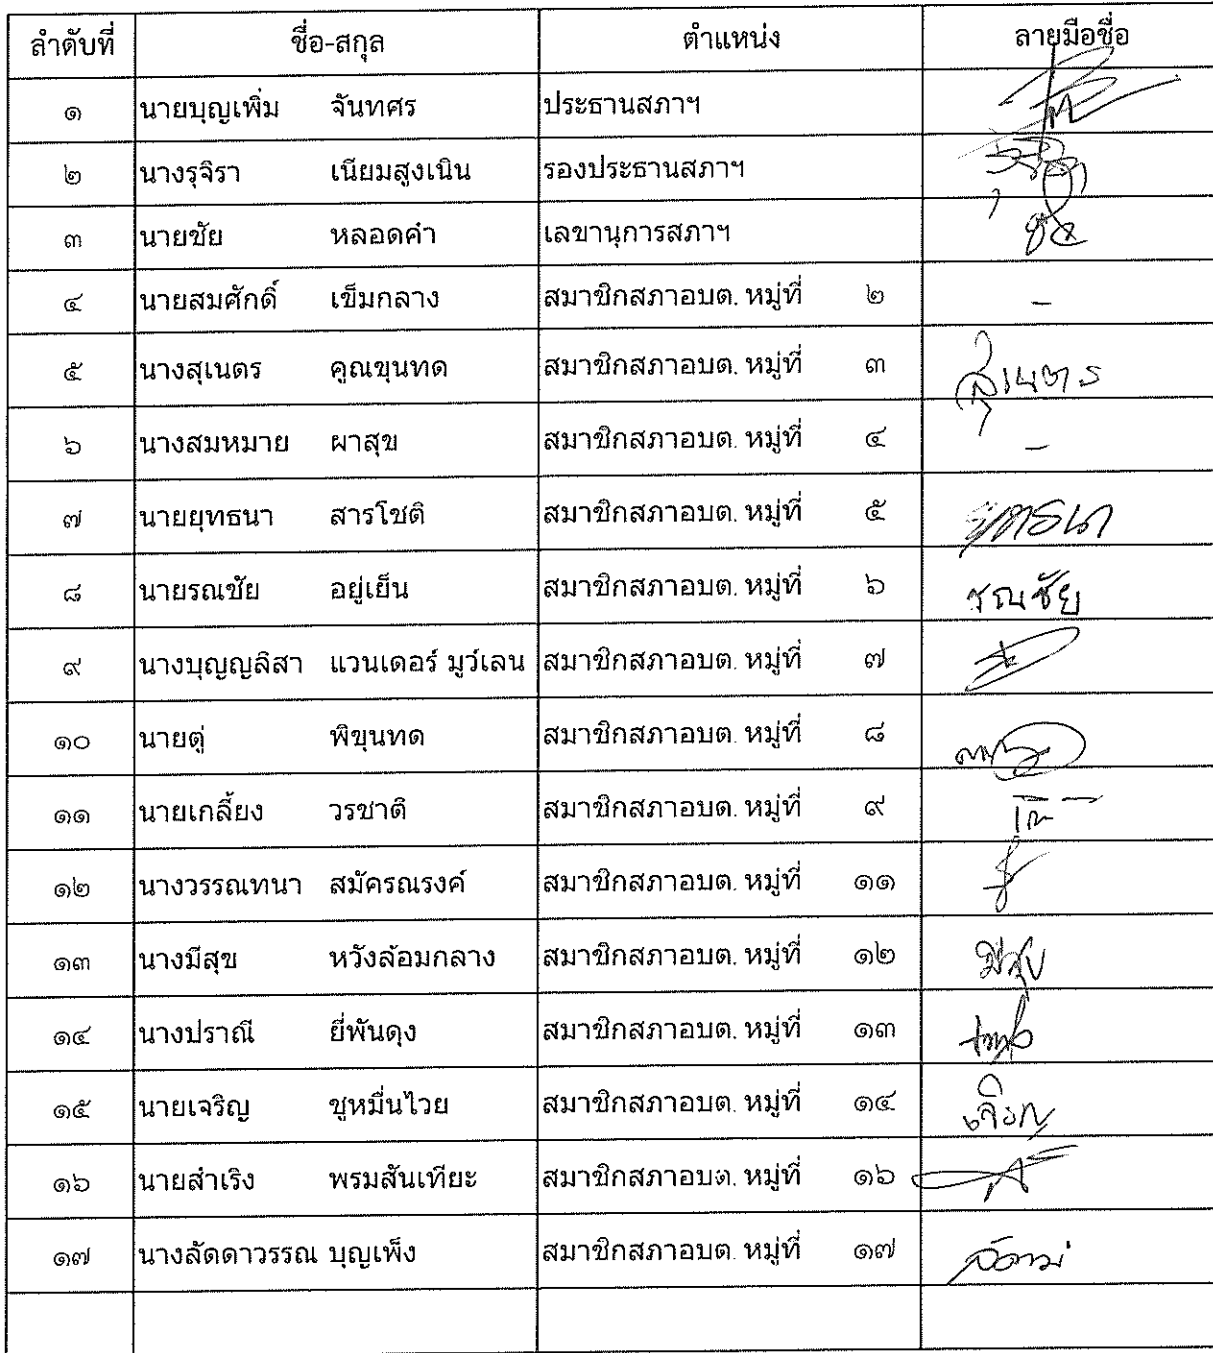 ลำดับที่ ชื่อ-สกุล ตำแหน่ง ลายมือชื่อ
๑ นายบุญเพิ่ม จันทศร ประธานสภาฯ
๒ นางรุจิรา เนียมสูงเนิน รองประธานสภาฯ
๓ นายชัย หลอดคำ เลขานุการสภาฯ
๔ นายสมศักดิ์ เข็มกลาง สมาชิกสภาอบต. หมู่ที่ ๒ -
๕ นางสุเนตร คูณขุนทด สมาชิกสภาอบต. หมู่ที่ ๓ สุเนตร
๖ นางสมหมาย ผาสุข สมาชิกสภาอบต. หมู่ที่ ๔ -
๗ นายยุทธนา สารโชติ สมาชิกสภาอบต. หมู่ที่ ๕
๘ นายรณชัย อยู่เย็น สมาชิกสภาอบต. หมู่ที่ ๖ รณชัย
๙ นางบุญญลิสา แวนเดอร์ มูว์เลน สมาชิกสภาอบต. หมู่ที่ ๗
๑๐ นายตู่ พิขุนทด สมาชิกสภาอบต. หมู่ที่ ๘
๑๑ นายเกลี้ยง วรชาติ สมาชิกสภาอบต. หมู่ที่ ๙
๑๒ นางวรรณทนา สมัครณรงค์ สมาชิกสภาอบต. หมู่ที่ ๑๑
๑๓ นางมีสุข หวังล้อมกลาง สมาชิกสภาอบต. หมู่ที่ ๑๒ มีสุข
๑๔ นางปราณี ยี่พันดุง สมาชิกสภาอบต. หมู่ที่ ๑๓
๑๕ นายเจริญ ชูหมื่นไวย สมาชิกสภาอบต. หมู่ที่ ๑๔ เจริญ
๑๖ นายสำเริง พรมสันเทียะ สมาชิกสภาอบต. หมู่ที่ ๑๖
๑๗ นางลัดดาวรรณ บุญเพ็ง สมาชิกสภาอบต. หมู่ที่ ๑๗